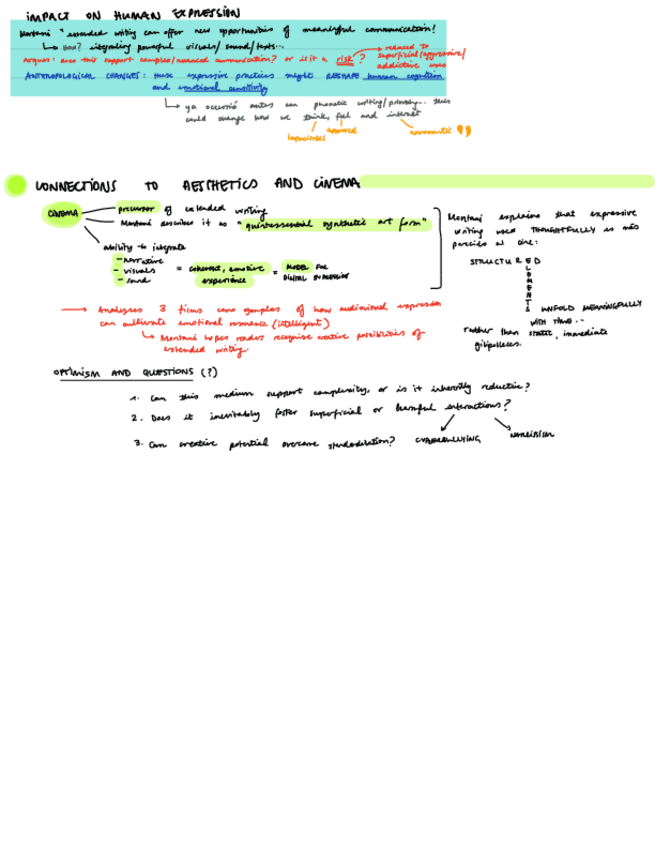 IMPACT ON HUMAN EXPRESSION
Montani "extended writing can offer new opportunities of meaningful communication!
↳ How? integrating powerful visuals/sound/texts...
Argues: does this support complex/nuanced communication? or is it a risk? → reduced to superficial/aggressive/addictive uses
ANTHROPOLOGICAL CHANGES: these expressive practices might RESHAPE human cognition
and emotional sensitivity
↳ ya occurrió antes con phonetic writing/printing... this
could change how we think, feel and interact
CONNECTIONS TO AESTHETICS AND CINEMA
CINEMA
precursor of extended writing
Montani describes it as "quintessential synthetic art form"
ability to integrate
- narrative
- visuals
- sound
= coherent, emotive experience = MODEL FOR DIGITAL EXPRESSION
Montani explains that expressive
writing used THOUGHTFULLY is más
parecido al cine:
STRUCTURED
ELEMENTS
UNFOLD MEANINGFULLY
WITH TIME..
rather than static, immediate
→ Analyses 3 films como examples of how audiovisual expression
can cultivate emotional resonance (intelligent)
↳ Montani hopes readers recognise creative possibilities of
extended writing.
OPTIMISM AND QUESTIONS (?)
1. Can this medium support complexity, or is it inherently reductive?
2. Does it inevitably foster superficial or harmful interactions?
CYBERBULLYING
NARCISISM
3. Can creative potential overcome standardisation?